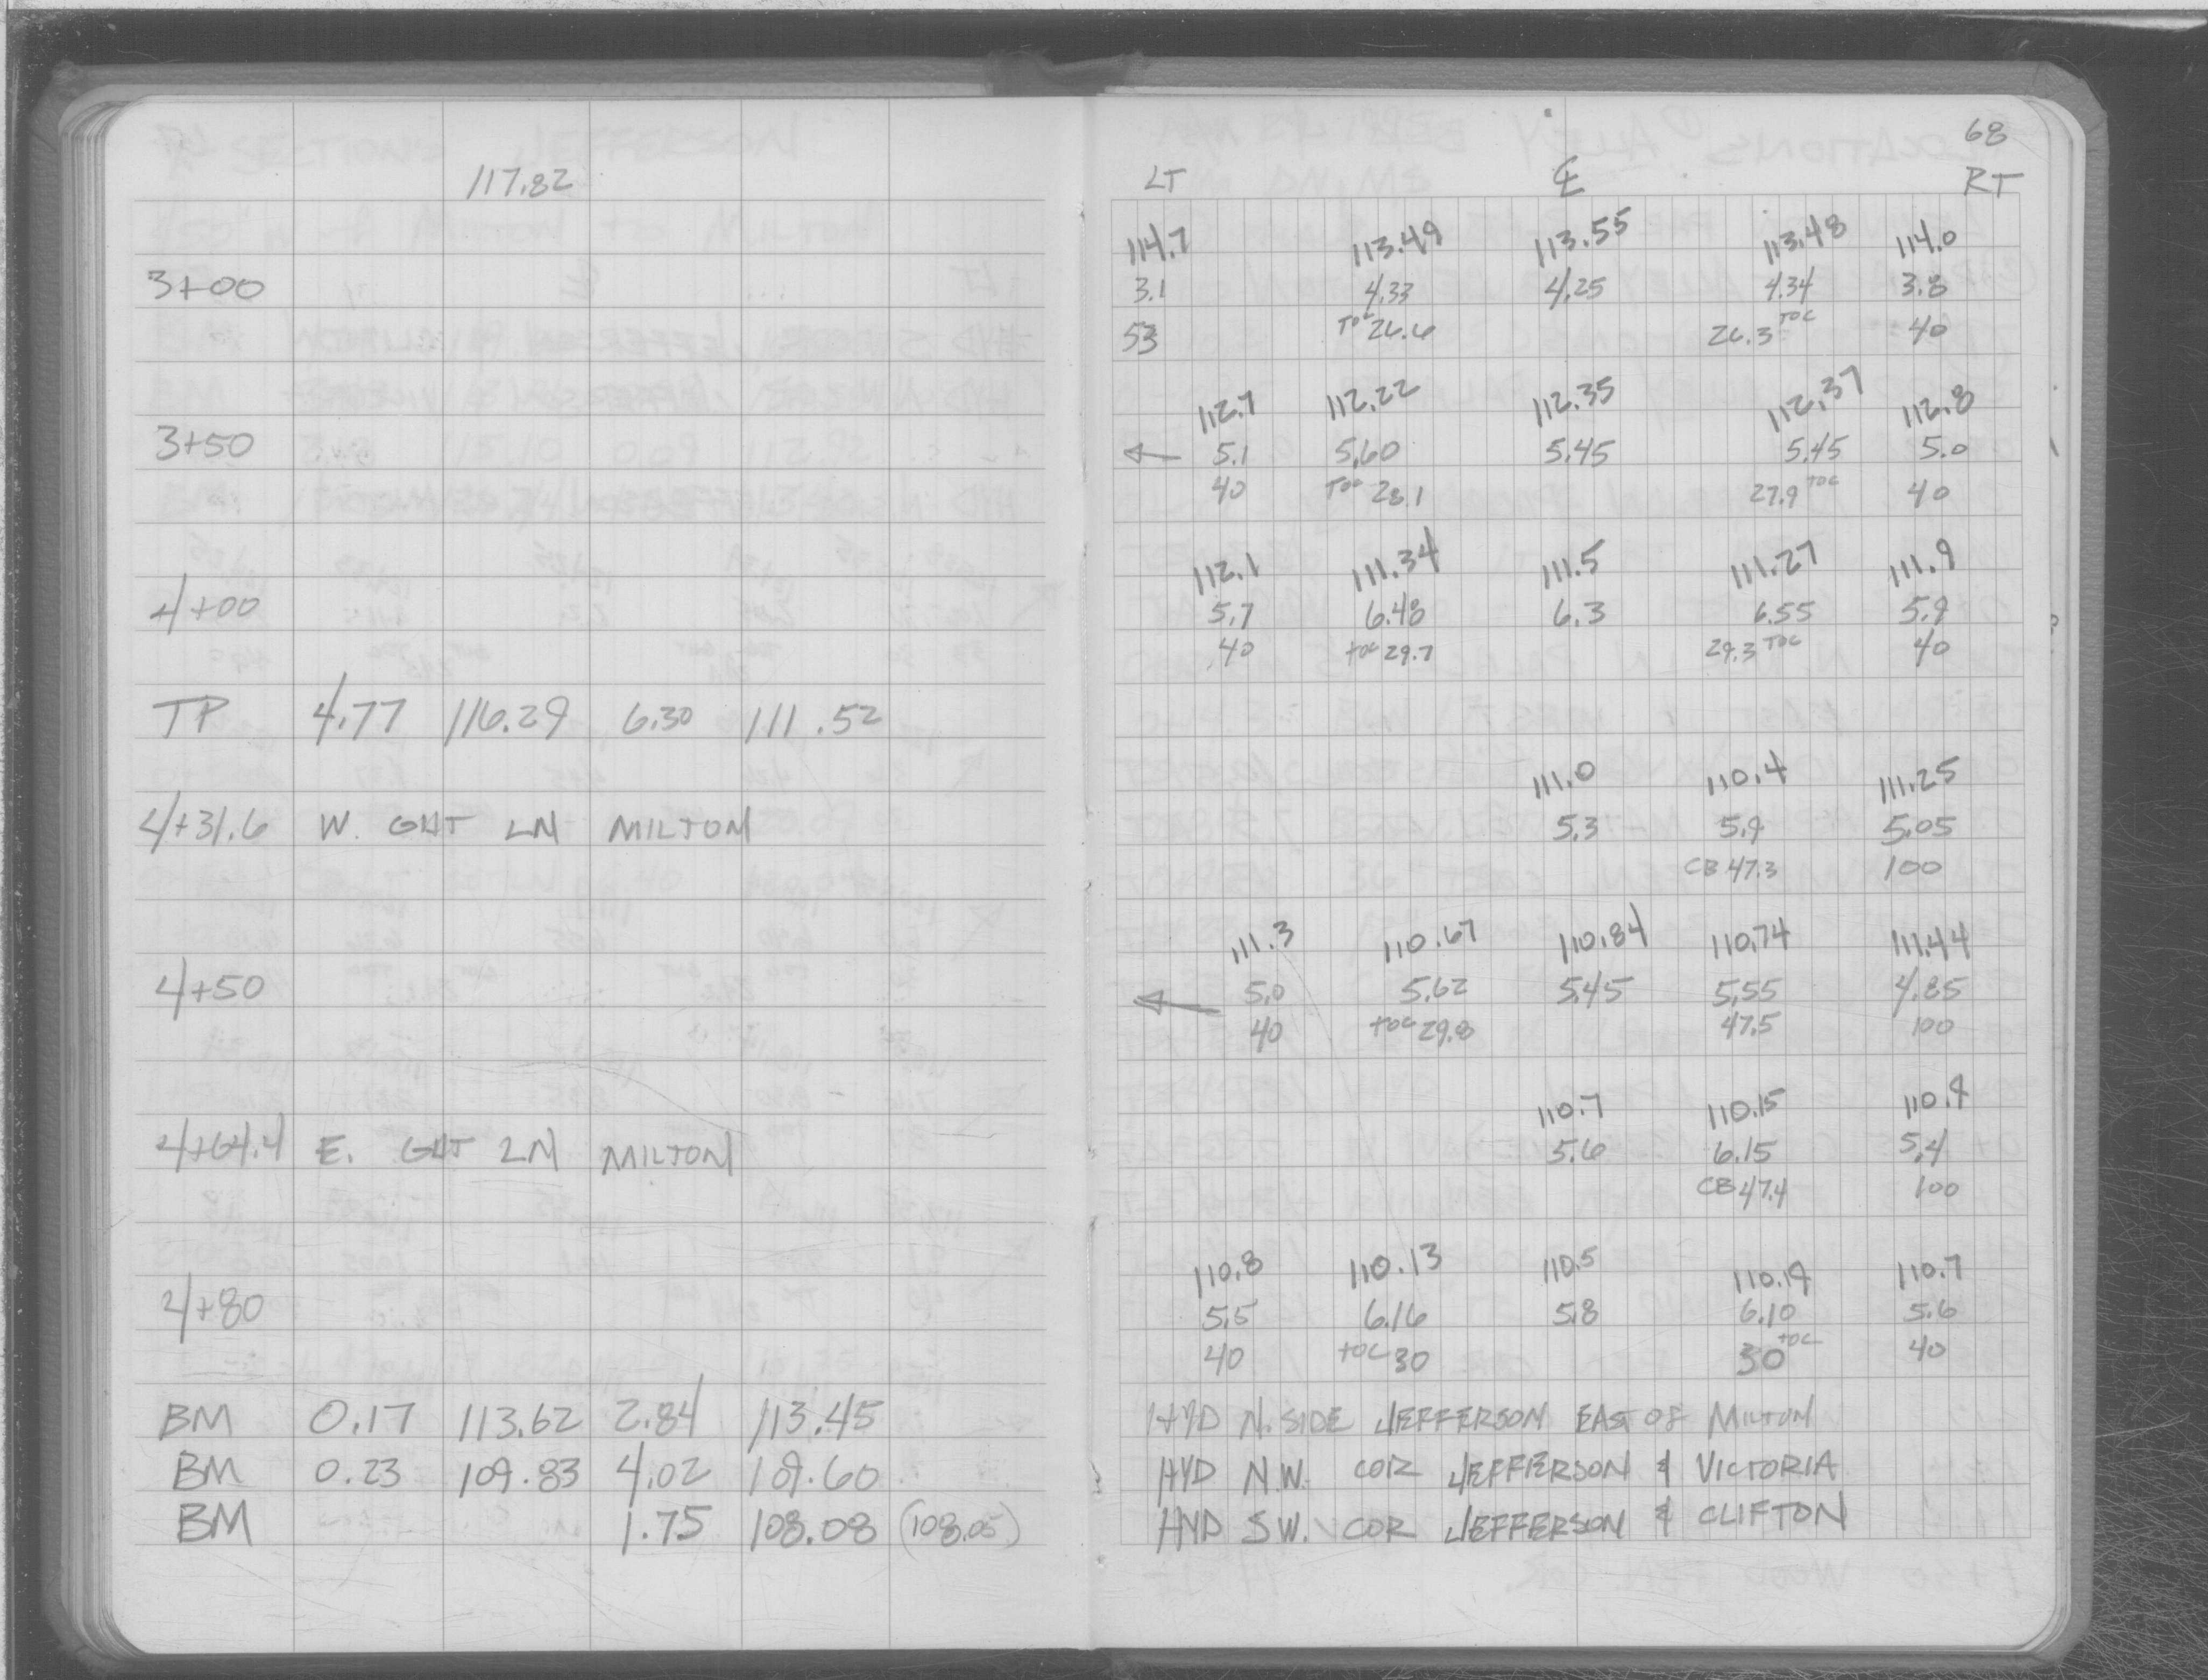 68
117.82
LT ℄ RT
114.7 113.49 113.55 113.48 114.0
3+00 3.1 4.33 4.25 4.34 3.8
53 TOC 26.6 26.3 TOC 40
112.7 112.22 112.35 112.37 112.8
3+50 5.1 5.60 5.45 5.45 5.0
40 TOC 28.1 27.9 TOC 40
112.1 111.34 111.5 111.27 111.9
4+00 5.7 6.48 6.3 6.55 5.9
40 TOC 29.7 29.3 TOC 40
TP 4.77 116.29 6.30 111.52
111.0 110.4 111.25
4+31.6 W. GUT LN MILTON 5.3 5.9 5.05
CB 47.3 100
111.3 110.67 110.84 110.74 111.44
4+50 5.0 5.62 5.45 5.55 4.85
40 TOC 29.8 47.5 100
110.7 110.15 110.9
4+64.4 E. GUT LN MILTON 5.6 6.15 5.4
CB 47.4 100
110.8 110.13 110.5 110.19 110.7
4+80 5.5 6.16 5.8 6.10 5.6
40 TOC 30 30 TOC 40
BM 0.17 113.62 2.84 113.45 HYD N. SIDE JEFFERSON EAST OF MILTON
BM 0.23 109.83 4.02 109.60 HYD N.W. COR JEFFERSON & VICTORIA
BM 1.75 108.08 (108.05) HYD S.W. COR JEFFERSON & CLIFTON